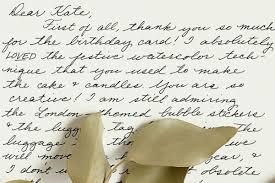 Dear Kate,
First of all, thank you so much
for the birthday card! I absolutely
LOVED the festive watercolor tech-
nique that you used to make
the cake & candles. You are so
creative! I am still admiring
the London-themed bubble stickers
& the
luggage
will mov
I don't obsolete